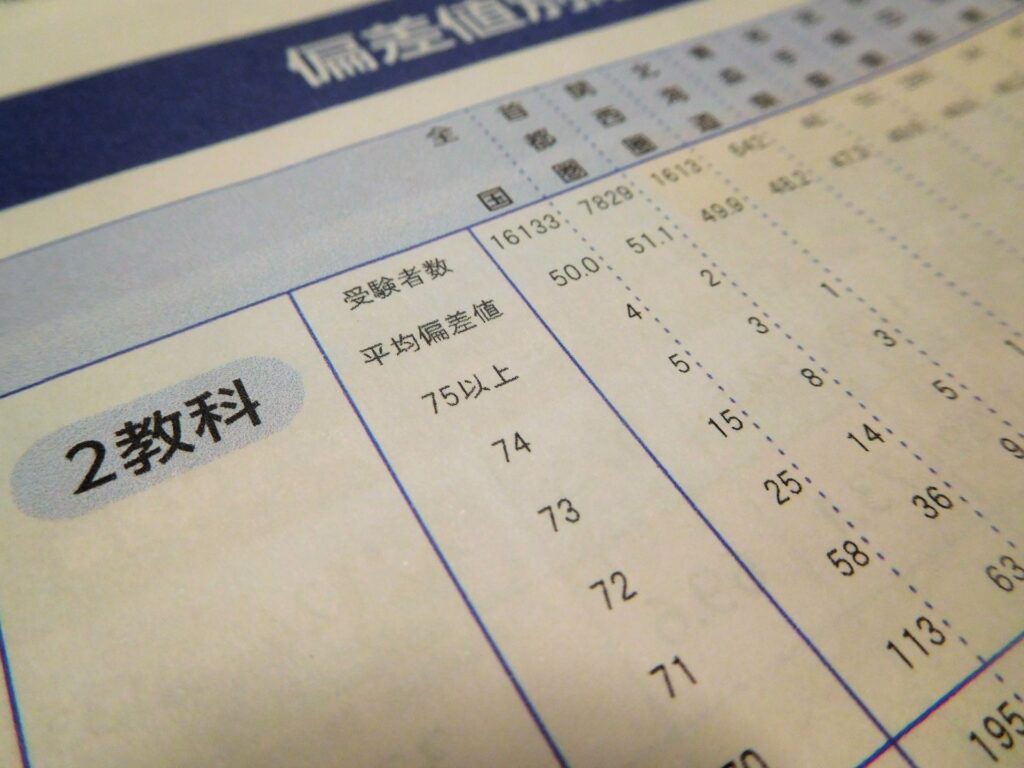 偏差値別
全国 首都圏 関西圏 北海道
2教科
受験者数 16133 7829 1613 642
平均偏差値 50.0 51.1 49.9 48.2 47.3
75以上 4 2
74 5 3 1
73 15 8 3
72 25 14 5 1
71 58 36 9
70 113 63
195